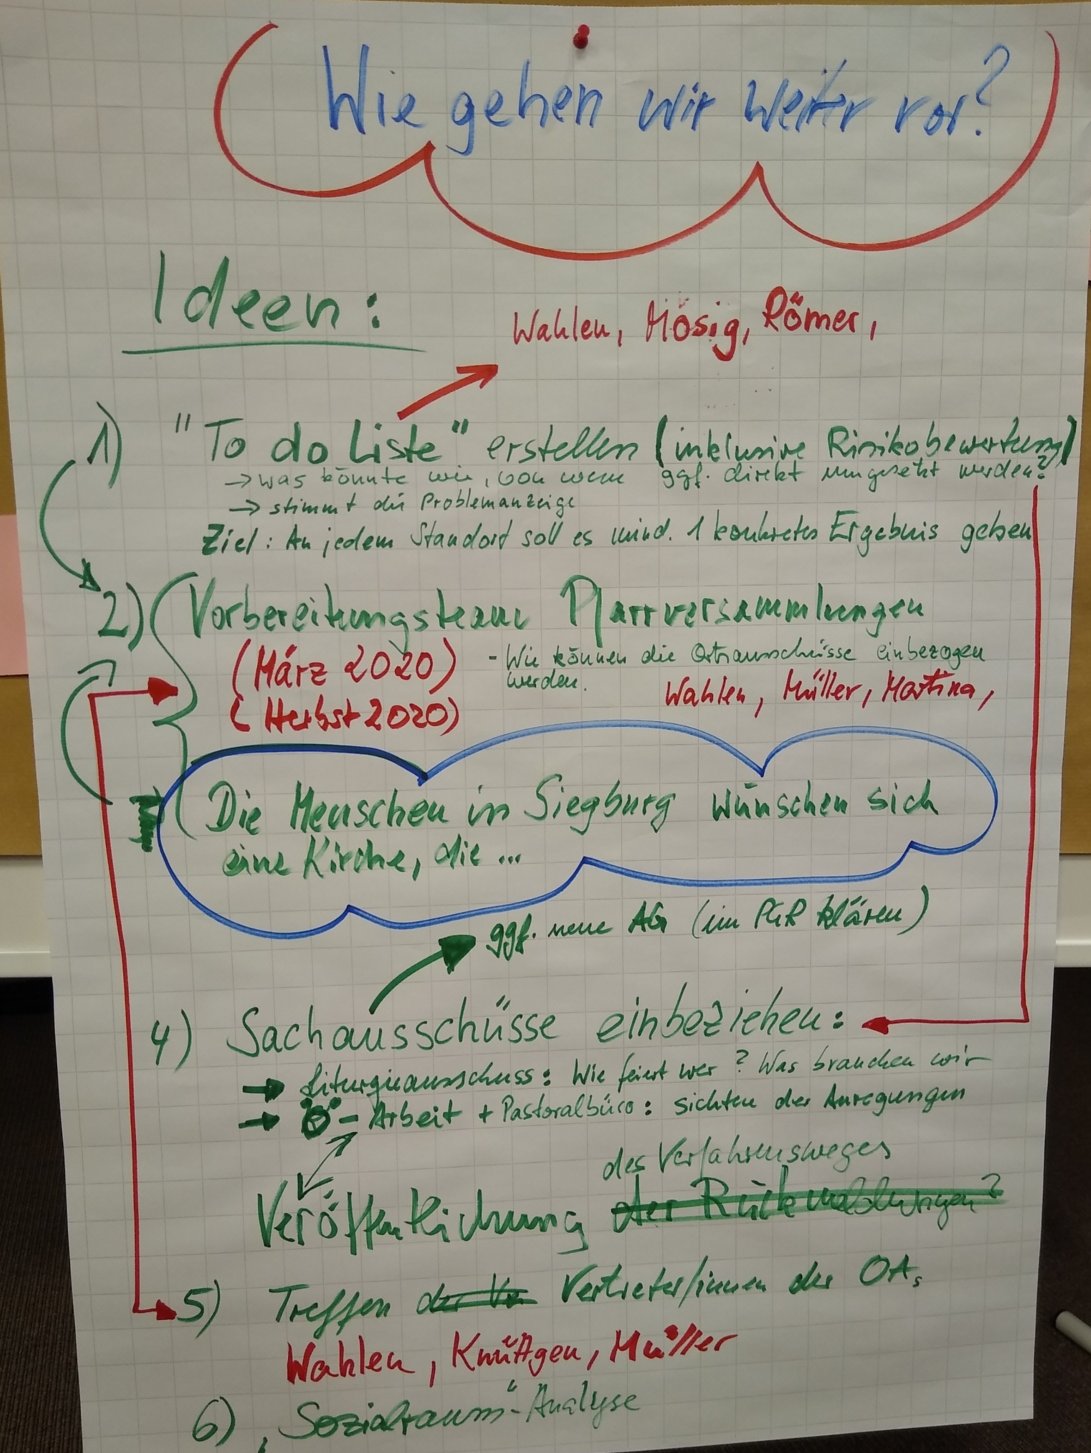 Wie gehen wir weiter vor?
Ideen:
Wahlen, Mösig, Römer,
1) "To do Liste" erstellen (inklusive Risikobewertung)
→ was könnte wie, von wem ggf. direkt umgesetzt werden?
→ stimmt die Problemanzeige
Ziel: An jedem Standort soll es mind. 1 konkretes Ergebnis geben
2) Vorbereitungsteam Pfarrversammlungen
(März 2020) - Wie können die Ortsausschüsse einbezogen
werden.
Wahlen, Müller, Martina,
(Herbst 2020)
Die Menschen in Siegburg wünschen sich
eine Kirche, die ...
ggf. neue AG (im PGR klären)
4) Sachausschüsse einbeziehen:
→ Liturgieausschuss: Wie feiert wer? Was brauchen wir
→ Ö - Arbeit + Pastoralbüro: sichten der Anregungen
des Verfahrensweges
Veröffentlichung der Rückmeldungen?
5) Treffen der Vertreter/innen der OAs
Wahlen, Knüttgen, Müller
6) "Sozialraum"-Analyse